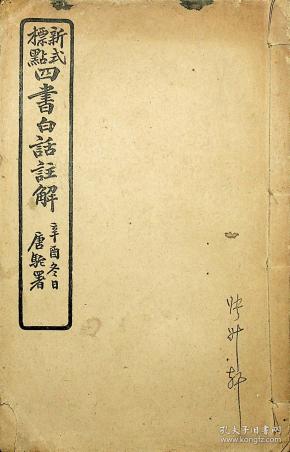 新式標點四書白話註解
辛酉冬日
唐駝署
孔夫子旧书网